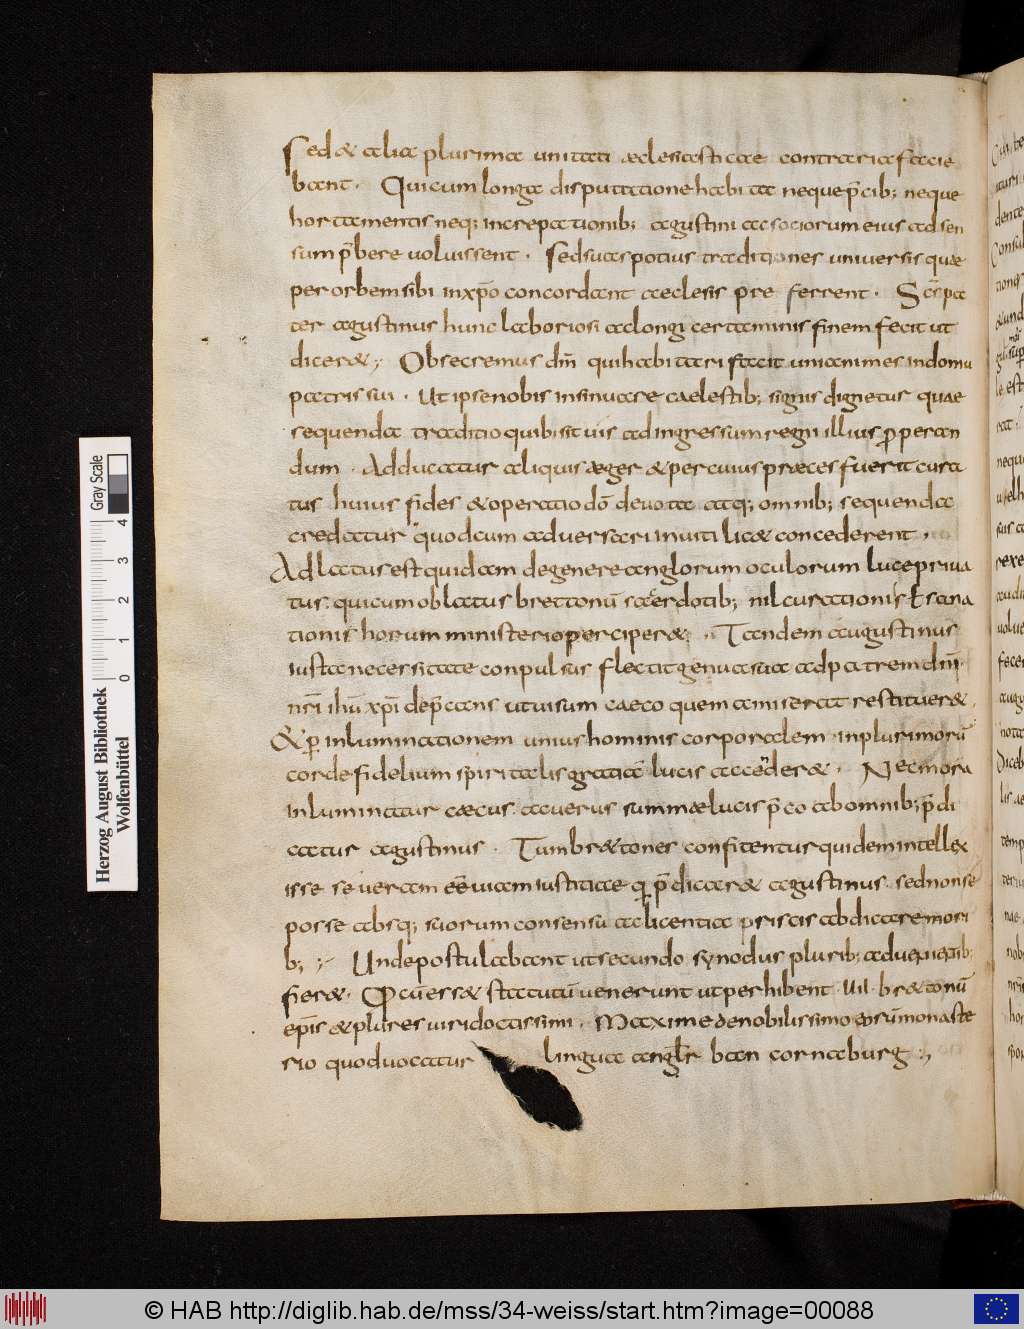 Sed & alia plurima unitati aeclesiasticae contraria facie
bant. Qui cum longa disputatione habita neque p̄cib; neque
hortamentis neq; increpationib; agustini ac sociorum eius adsen
sum p̄bere uoluissent. Sed suas potius traditiones uniuersis quae
per orbem sibi in xp̄o concordant aeclesiis pre ferrent. Sc̄s pa
ter agustinus hunc laboriosi ac longi certaminis finem fecit ut
dicer&; Obsecremus dn̄m qui habitari facit unianimes in domu
patris sui. Ut ipse nobis insinuare caelestib; signis dignetur quae
sequenda traditio quib; sit uis ad ingressum regni illius p̄peran
dum. Adducatur aliquis aeger & per cuius praeces fuerit cura
tus huius fides & operatio dō deuota atq; omnib; sequenda
credatur quod cum aduersarii inuiti lic& concederent,
Adlatus est quidam de genere anglorum oculorum luce priua
tus. qui cum oblatus brettonū sacerdotib; nil curationis & sana
tionis horum ministerio perciper&. Tandem augustinus
iusta necersitate conpulsus flectit genua sua ad patrem dn̄i
nr̄i ihū xp̄i dep̄cans ut uisum caeco quem amiserat restituer&,
& p̱ inluminationem unius hominis corporalem in plurimorū
corde fidelium spiritalis gratiae lucis accenderer&. Nec mora
inluminatur caecus ac uerus summae lucis p̄co ab omnib; p̄di
catur agustinus. Tum br&tones confitentur quidem intellex
isse se ueram eē uiam iustitiae qū p̄dicar& agustinus. sed non se
posse absq; suorum consensu ac licentia priscis abdicare mori
b; Unde postulabant ut secundo synodus plurib; aduenientib;
fier&. Quo cū ess& statutū uenerunt ut perhibent. uii. br&tonū
ep̄is & plures uiri doctissimi. Maxime de nobilissimo eorū monaste
rio quod uocatur lingua anglor̄ bancornaburg:,
© HAB http://diglib.hab.de/mss/34-weiss/start.htm?image=00088
Herzog August Bibliothek
Wolfenbüttel
0 1 2 3 4
Gray Scale